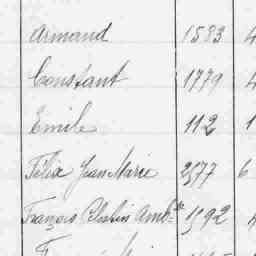 Armand 1583 4
Constant 1779 4
Emile 112 1
Félix Jean Marie 2577 6
François 1592 4